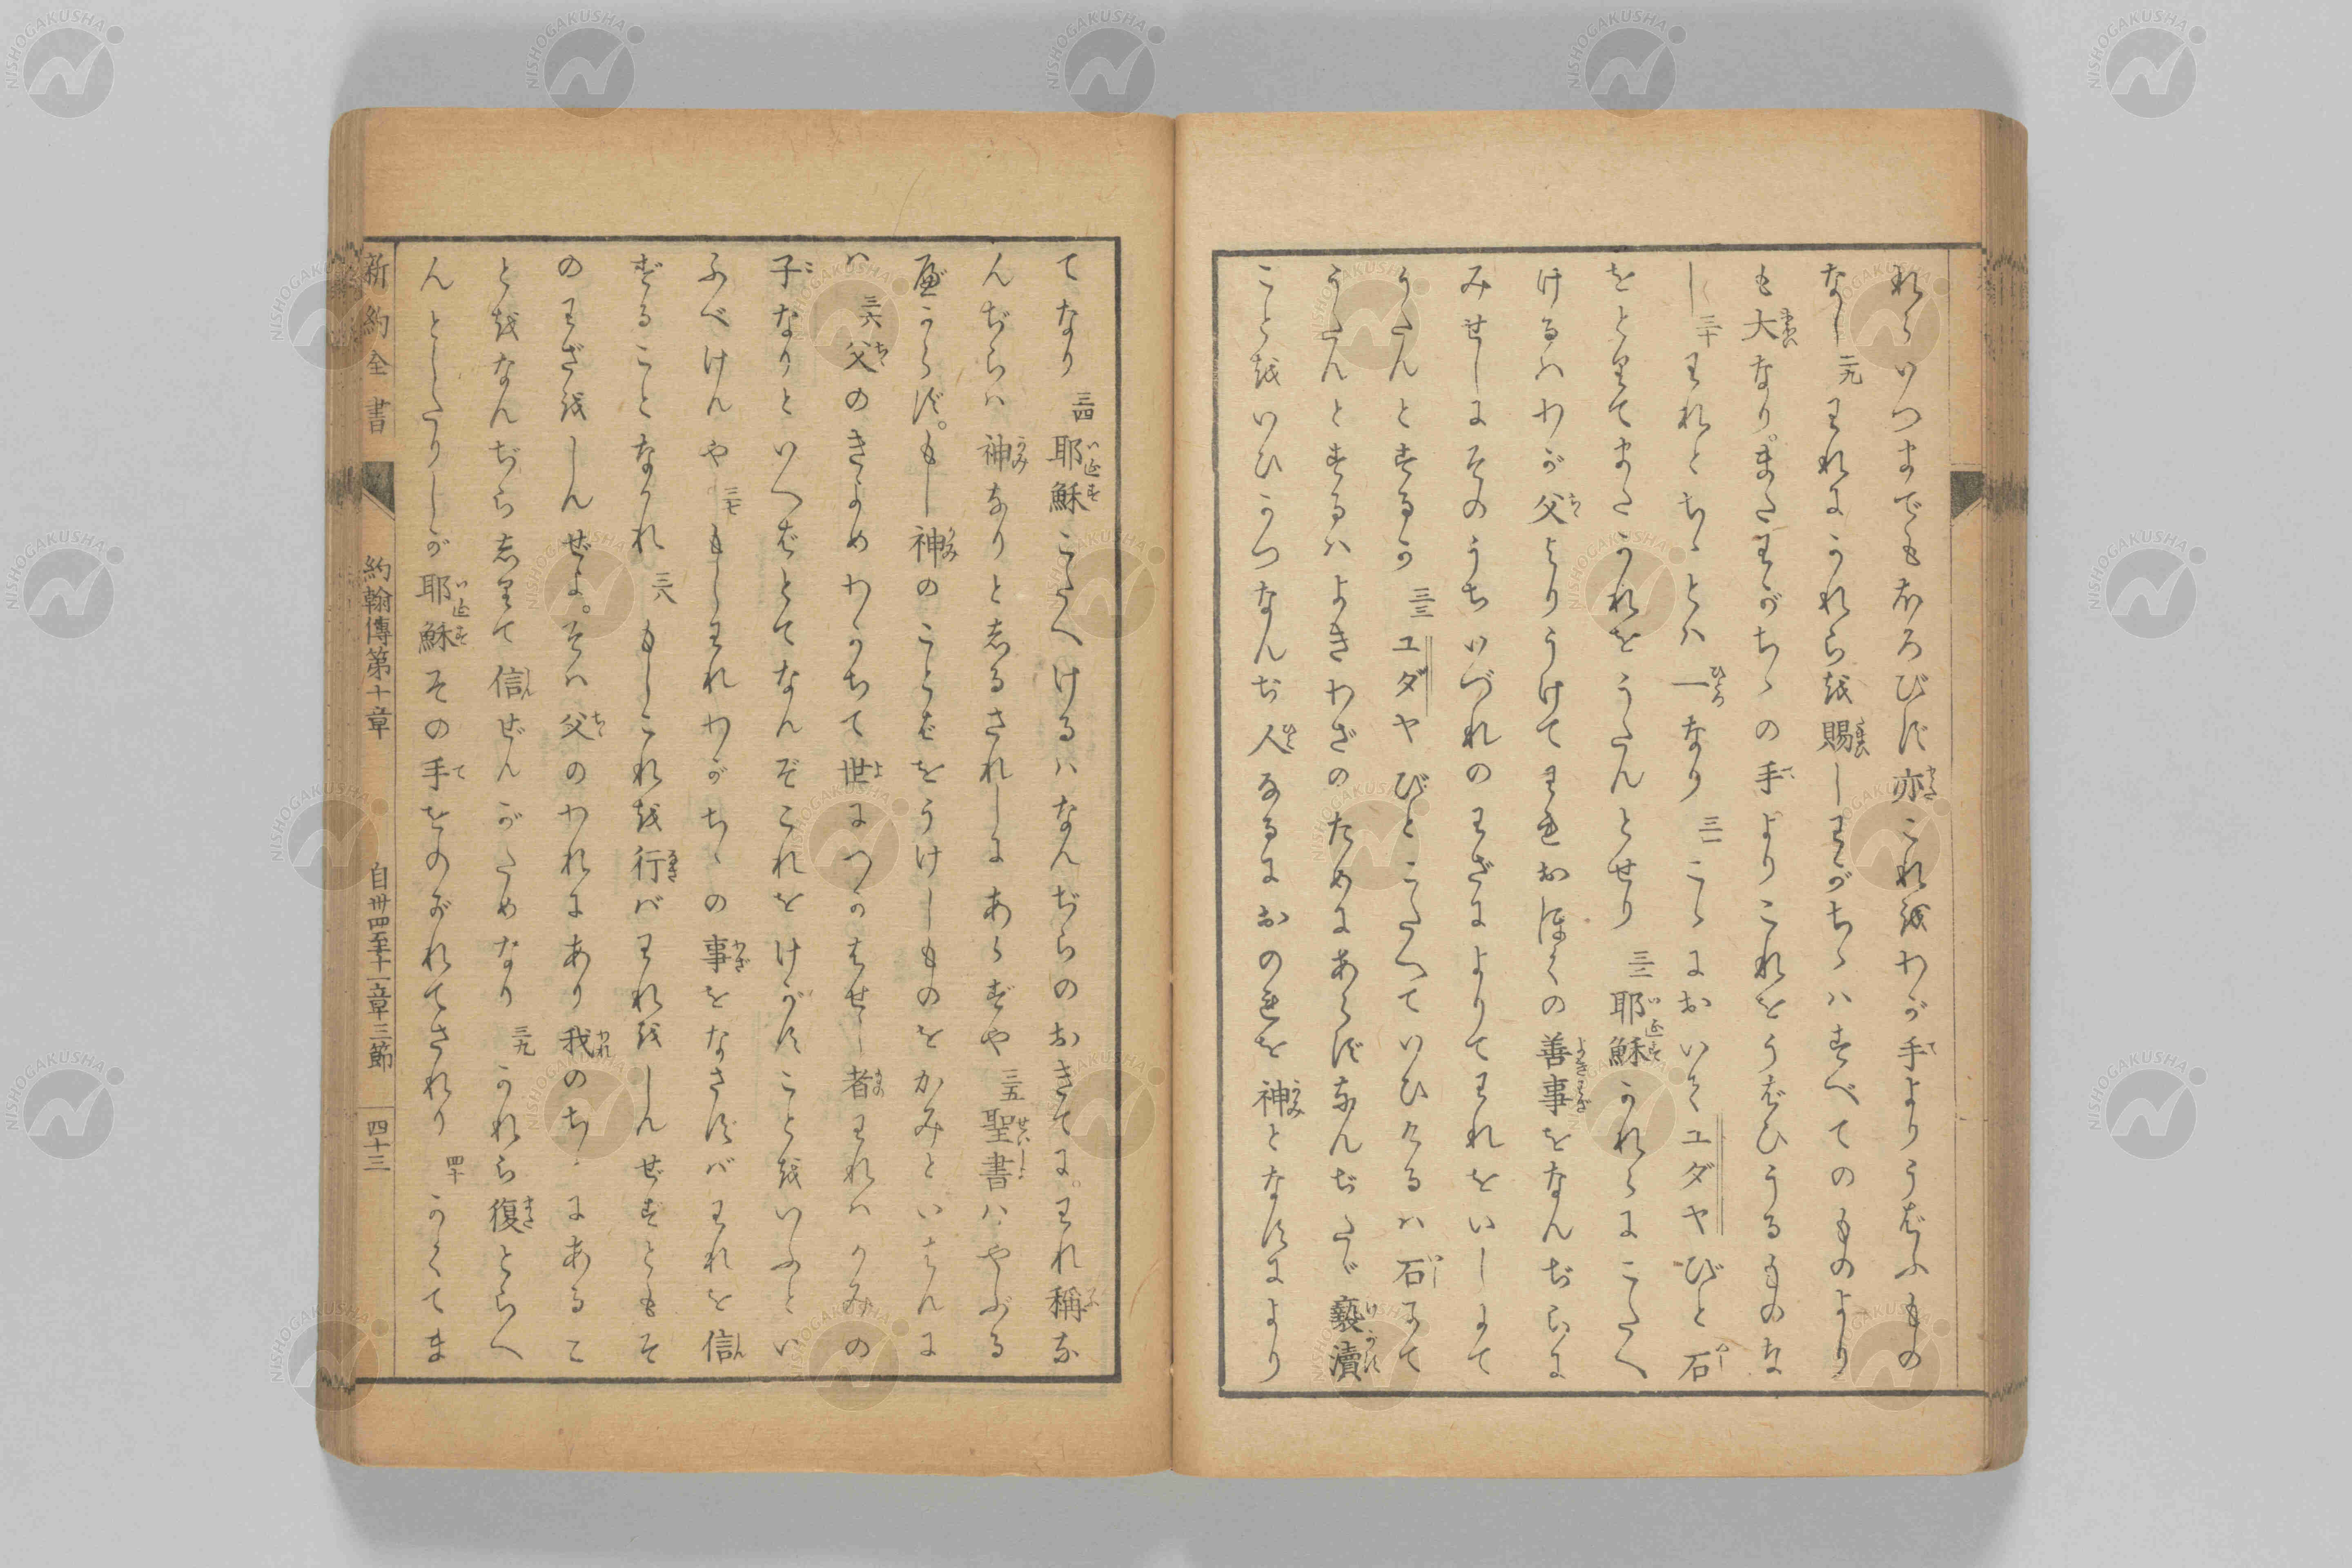 れらいつまでもほろびず亦これをわが手よりうばふもの
なし二九われにかれらを賜しわがちゝハすべてのものより
も大なり。またわがちゝの手よりこれをうばひうるものな
し三十われとちゝとハ一なり三一こゝにおいてユダヤびと石
をとりてまたかれをうたんとせり三二耶穌かれらにこたへ
けるハわが父よりうけてわれおほくの善事をなんぢらに
みせしにそのうちいづれのわざによりてわれをいしにて
うたんとするか三三ユダヤびとこたへていひけるハ石にて
うたんとするハよきわざのためにあらずなんぢたゞ褻瀆
ことをいひかつなんぢ人なるにおのれを神となすにより
てなり三四耶穌こたへけるハなんぢらのおきてに。われ稱な
んぢらハ神なりとしるされしにあらずや三五聖書ハやぶる
べからず。もし神のことばをうけしものをかみといはんに
ハ三六父のきよめわかちて世につかはせし者われハかみの
子なりといへばとてなんぞこれをけがすことをいふとい
ふべけんや三七もしわれわがちゝの事をなさずバわれを信
ずることなかれ三八もしこれを行バわれをしんぜずともそ
のわざをしんぜよ。そハ父のわれにあり我のちゝにあるこ
とをなんぢらしりて信ぜんがためなり三九かれら復とらへ
んとしたりしが耶穌その手をのがれてされり四十かくてま
新約全書 約翰傳第十章 自卅四至十一章三節 四十三